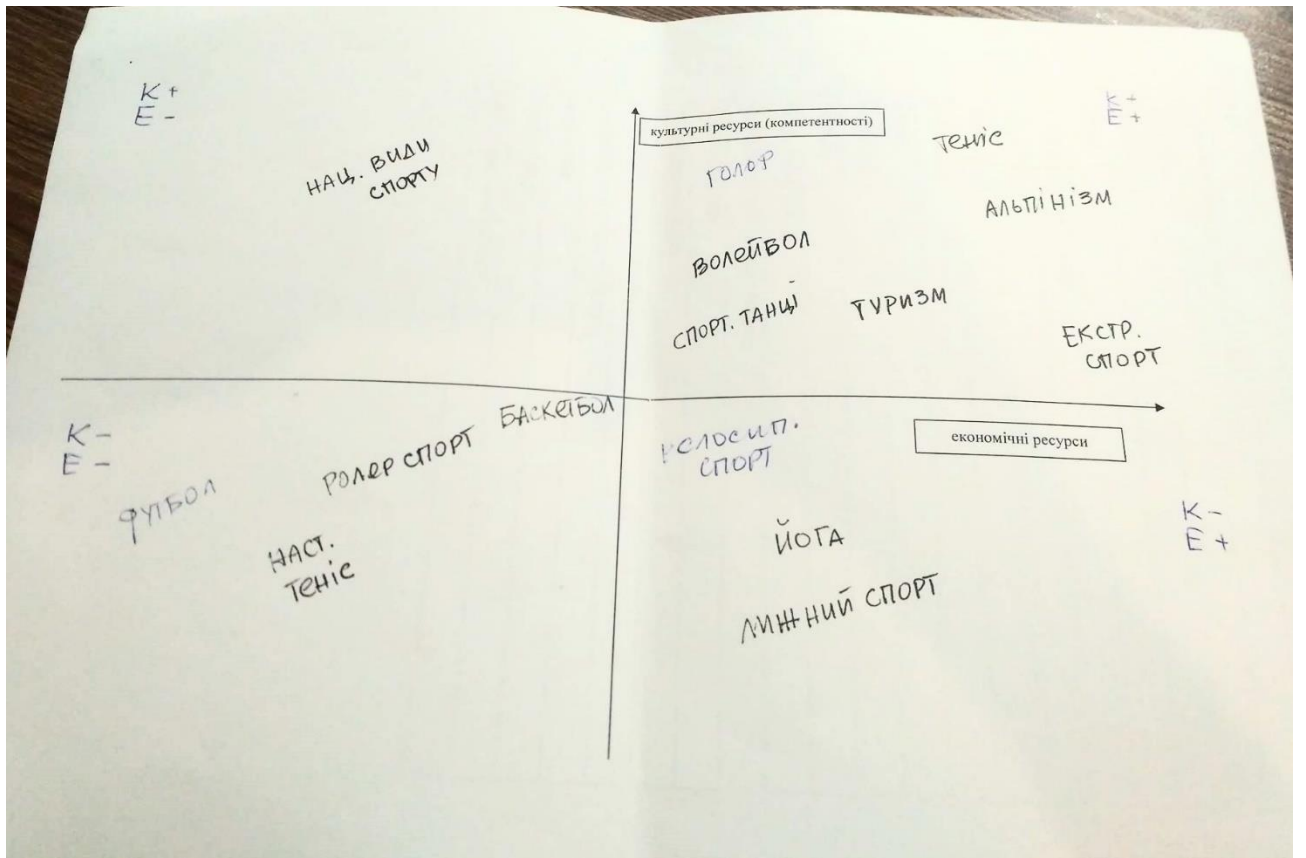 К +
Е -
НАЦ. ВИДИ
СПОРТУ
культурні ресурси (компетентності)
К +
Е +
ГОЛОФ
Теніс
АЛЬПІНІЗМ
ВОЛЕЙБОЛ
СПОРТ. ТАНЦІ
ТУРИЗМ
ЕКСТР.
СПОРТ
К -
Е -
БАСКЕТБОЛ
РОЛЕР СПОРТ
ФУТБОЛ
НАСТ.
ТЕНІС
ВЕЛОСИП.
СПОРТ
економічні ресурси
К -
Е +
ЙОГА
ЛИЖНИЙ СПОРТ